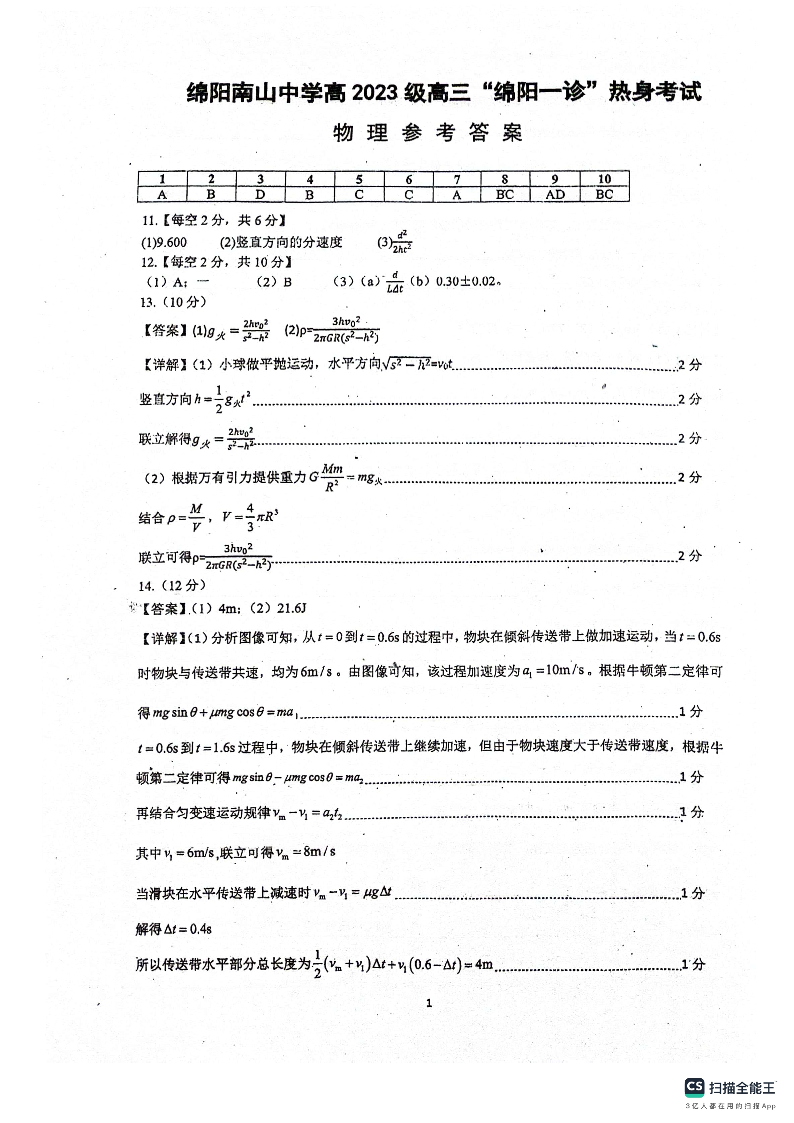 绵阳南山中学高 2023 级高三“绵阳一诊”热身考试
物 理 参 考 答 案
1 2 3 4 5 6 7 8 9 10
A B D B C C A BC AD BC
11.【每空 2 分，共 6 分】
(1)9.600 (2)竖直方向的分速度 (3)d²/2ht²
12.【每空 2 分，共 10 分】
（1）A；一 （2）B （3）（a）d/LΔt（b）0.30±0.02。
13.（10 分）
【答案】(1)g火 = 2hv₀²/s²−h² (2)ρ=3hv₀²/2πGR(s²−h²)
【详解】（1）小球做平抛运动，水平方向√s²−h²=v₀t 2 分
竖直方向 h = 1/2 g火t² 2 分
联立解得g火 = 2hv₀²/s²−h² 2 分
（2）根据万有引力提供重力 G Mm/R² = mg火 2 分
结合 ρ = M/V ， V = 4/3 πR³
联立可得ρ=3hv₀²/2πGR(s²−h²) 2 分
14.（12 分）
【答案】（1）4m；（2）21.6J
【详解】（1）分析图像可知，从 t = 0 到 t = 0.6s 的过程中，物块在倾斜传送带上做加速运动，当 t = 0.6s
时物块与传送带共速，均为 6m/s 。由图像可知，该过程加速度为 a₁ =10m/s 。根据牛顿第二定律可
得 mg sin θ + μmg cos θ = ma₁ 1 分
t = 0.6s 到 t = 1.6s 过程中，物块在倾斜传送带上继续加速，但由于物块速度大于传送带速度，根据牛
顿第二定律可得 mg sin θ − μmg cos θ = ma₂ 1 分
再结合匀变速运动规律 vm − v₁ = a₂t₂ 1 分
其中 v₁ = 6m/s ,联立可得 vm = 8m/s
当滑块在水平传送带上减速时 vm − v₁ = μgΔt 1 分
解得 Δt = 0.4s
所以传送带水平部分总长度为 1/2 (vm + v₁)Δt + v₁(0.6 − Δt) = 4m 1 分
1
CS 扫描全能王
3亿人都在用的扫描App